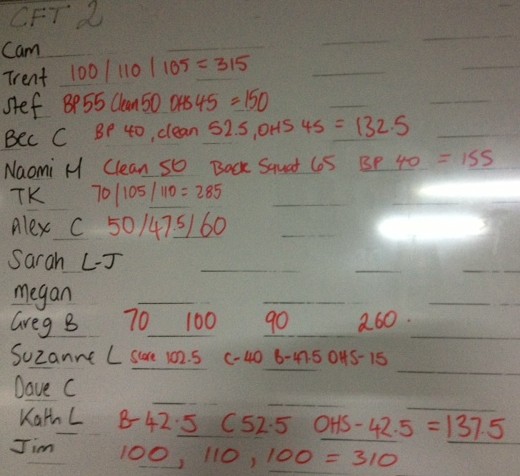 CFT 2
Cam
Trent 100 / 110 / 105 = 315
Stef BP 55 Clean 50 OHS 45 = 150
Bec C BP 40, clean 52.5, OHS 45 = 132.5
Naomi M Clean 50 Back Squat 65 BP 40 = 155
TK 70/105/110 = 285
Alex C 50/47.5/60
Sarah L-J
Megan
Greg B 70 100 90 260.
Suzanne L Score 102.5 C-40 B-47.5 OHS-15
Dave C
Kath L B-42.5 C 52.5 OHS-42.5 = 137.5
Jim 100, 110, 100 = 310